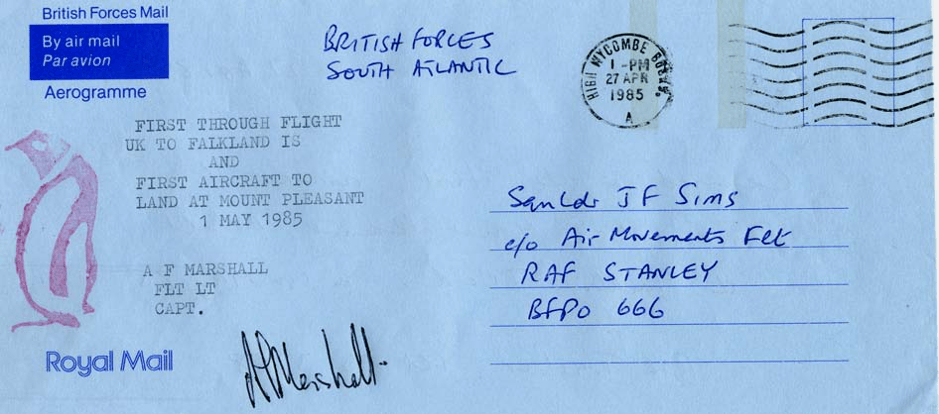 British Forces Mail
By air mail
Par avion
Aerogramme
BRITISH FORCES
SOUTH ATLANTIC
HIGH WYCOMBE BUCKS.
1 - PM
27 APR
1985
A
FIRST THROUGH FLIGHT
UK TO FALKLAND IS
AND
FIRST AIRCRAFT TO
LAND AT MOUNT PLEASANT
1 MAY 1985
A F MARSHALL
FLT LT
CAPT.
Royal Mail
AFMarshall
Sqn Ldr J F Sims
c/o Air Movements Flt
RAF STANLEY
BFPO 666